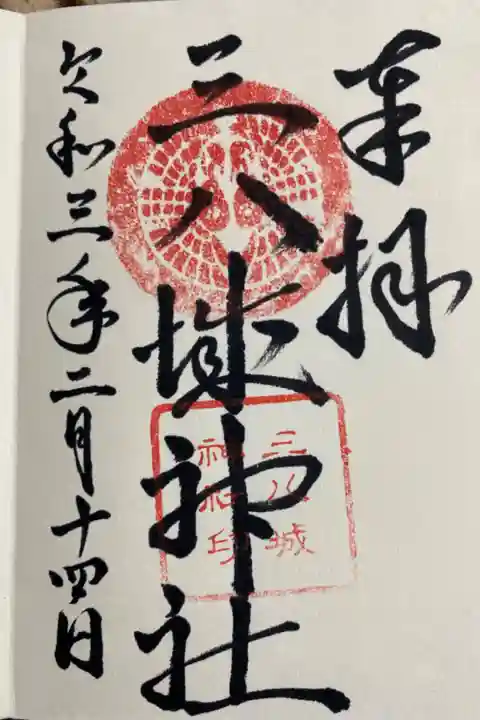 奉拝
三八城神社
令和三年二月十四日
三八城
神社印